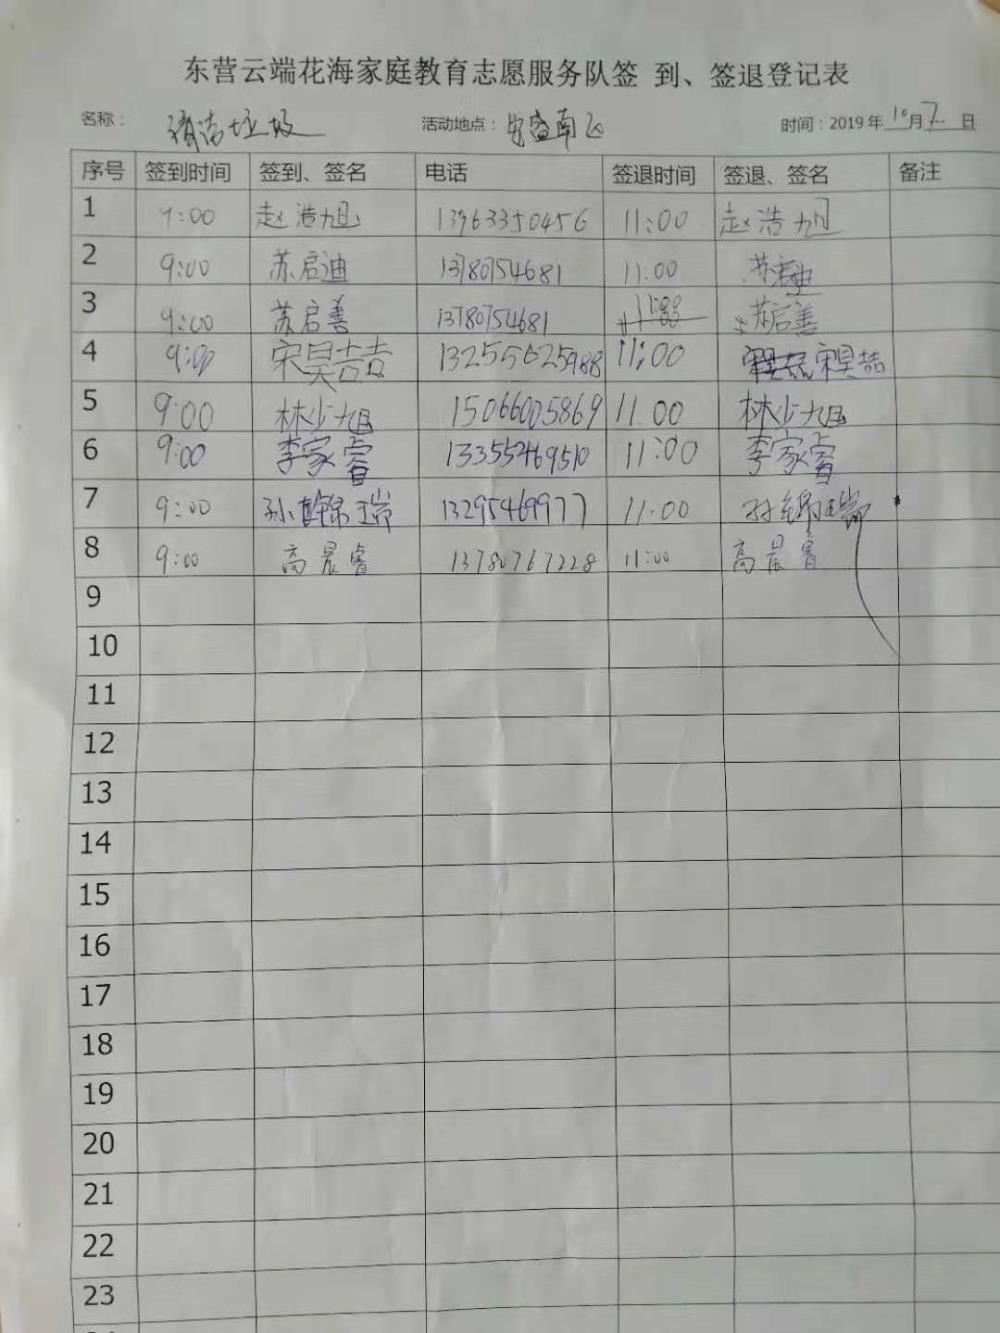 东营云端花海家庭教育志愿服务队签 到、签退登记表
名称： 清洁垃圾 活动地点：安盛南区 时间：2019年10月7日
序号 签到时间 签到、签名 电话 签退时间 签退、签名 备注
1 9:00 赵浩旭 13963350456 11:00 赵浩旭
2 9:00 苏启迪 13780754681 11.00 苏启迪
3 9:00 苏启善 13780754681 苏启善
4 9:00 宋昊喆 13255625988 11:00 宋昊喆
5 9:00 林少旭 15066005869 11.00 林少旭
6 9:00 李家睿 13355469510 11:00 李家睿
7 9:00 孙锦瑞 13295469977 11:00 孙锦瑞
8 9:00 高晨睿 13780767228 11:00 高晨睿
9
10
11
12
13
14
15
16
17
18
19
20
21
22
23